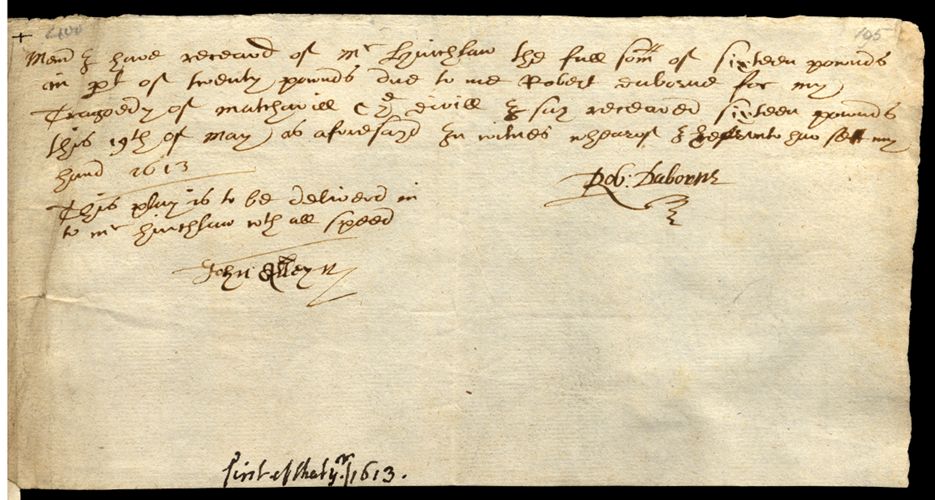 105
Memd I have receaud of mr Hinchlaw the full som of sixteen pownds
in pt of twenty pownds due to me Robert daborne for my
Tragedy of matchavill & ye divill I say receaved sixteen pownds
this 19th of may as aforesayd In witnes whearof I hereunto hav sett my
hand 1613
Rob: Daborne
This play is to be deliverd in
to mr hinchlaw wth all speed
John Alleyn
first of that yr 1613.